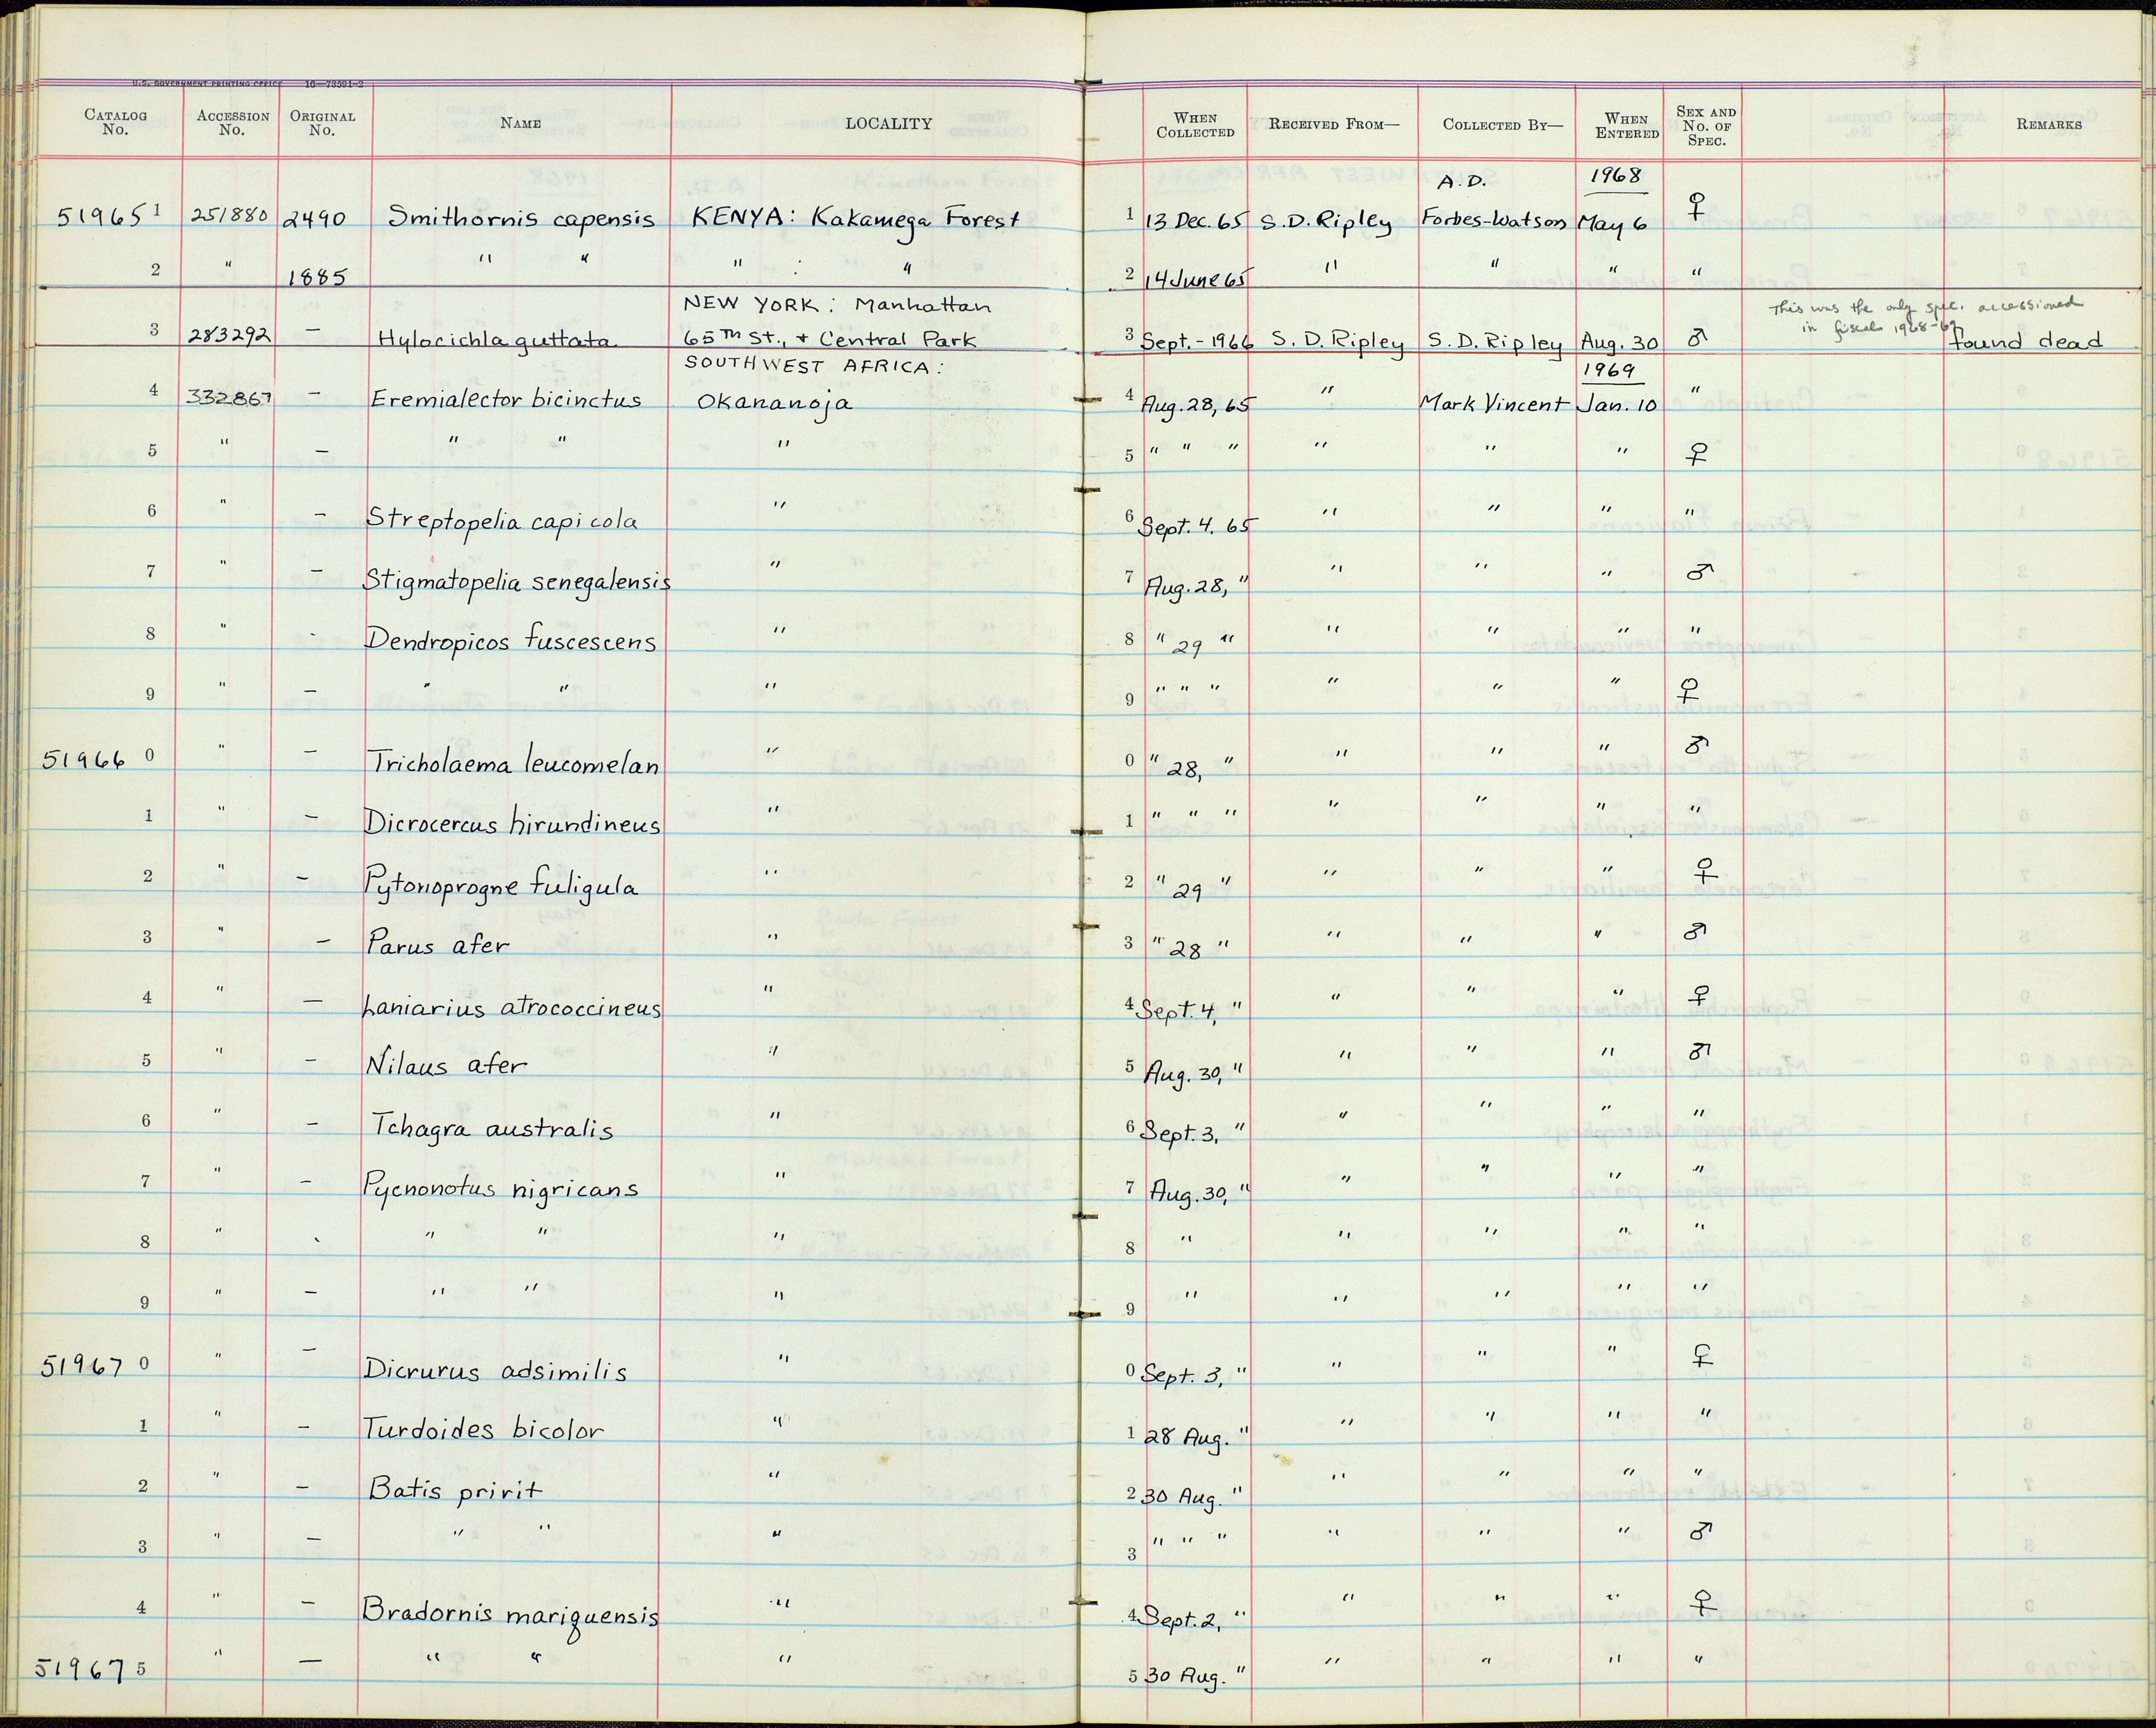 U.S. GOVERNMENT PRINTING OFFICE 16—73591-2
CATALOG No. ACCESSION No. ORIGINAL No. NAME LOCALITY WHEN COLLECTED RECEIVED FROM— COLLECTED BY— WHEN ENTERED SEX AND No. OF SPEC. REMARKS
A.D. 1968
51965 1 251880 2490 Smithornis capensis KENYA: Kakamega Forest 1 13 Dec. 65 S.D. Ripley Forbes-Watson May 6 ♀
2 " 1885 " " " : " 2 14 June 65 " " " "
NEW YORK: Manhattan This was the only spec. accessioned
3 283292 — Hylocichla guttata 65TH St., + Central Park 3 Sept.-1966 S. D. Ripley S. D. Ripley Aug. 30 ♂ in fiscal 1968-69 found dead
SOUTHWEST AFRICA: 1969
4 332867 — Eremialector bicinctus Okananoja 4 Aug. 28, 65 " Mark Vincent Jan. 10 "
5 " — " " " 5 " " " " " " ♀
6 " — Streptopelia capicola " 6 Sept. 4. 65 " " " "
7 " — Stigmatopelia senegalensis " 7 Aug. 28, " " " " ♂
8 " - Dendropicos fuscescens " 8 " 29 " " " " "
9 " — " " " 9 " " " " " " ♀
51966 0 " — Tricholaema leucomelan " 0 " 28, " " " " ♂
1 " — Dicrocercus hirundineus " 1 " " " " " " "
2 " — Pytonoprogne fuligula " 2 " 29 " " " " ♀
3 " — Parus afer " 3 " 28 " " " " ♂
4 " — Laniarius atrococcineus " 4 Sept. 4, " " " " ♀
5 " — Nilaus afer " 5 Aug. 30, " " " " ♂
6 " — Tchagra australis " 6 Sept. 3, " " " " "
7 " — Pycnonotus nigricans " 7 Aug. 30, " " " " "
8 " - " " " 8 " " " " "
9 " — " " " 9 " " " " "
51967 0 " — Dicrurus adsimilis " 0 Sept. 3, " " " " ♀
1 " — Turdoides bicolor " 1 28 Aug. " " " " "
2 " — Batis pririt " 2 30 Aug. " " " " "
3 " — " " " 3 " " " " " " ♂
4 " — Bradornis mariquensis " 4 Sept. 2, " " " " ♀
51967 5 " — " " " 5 30 Aug. " " " " "